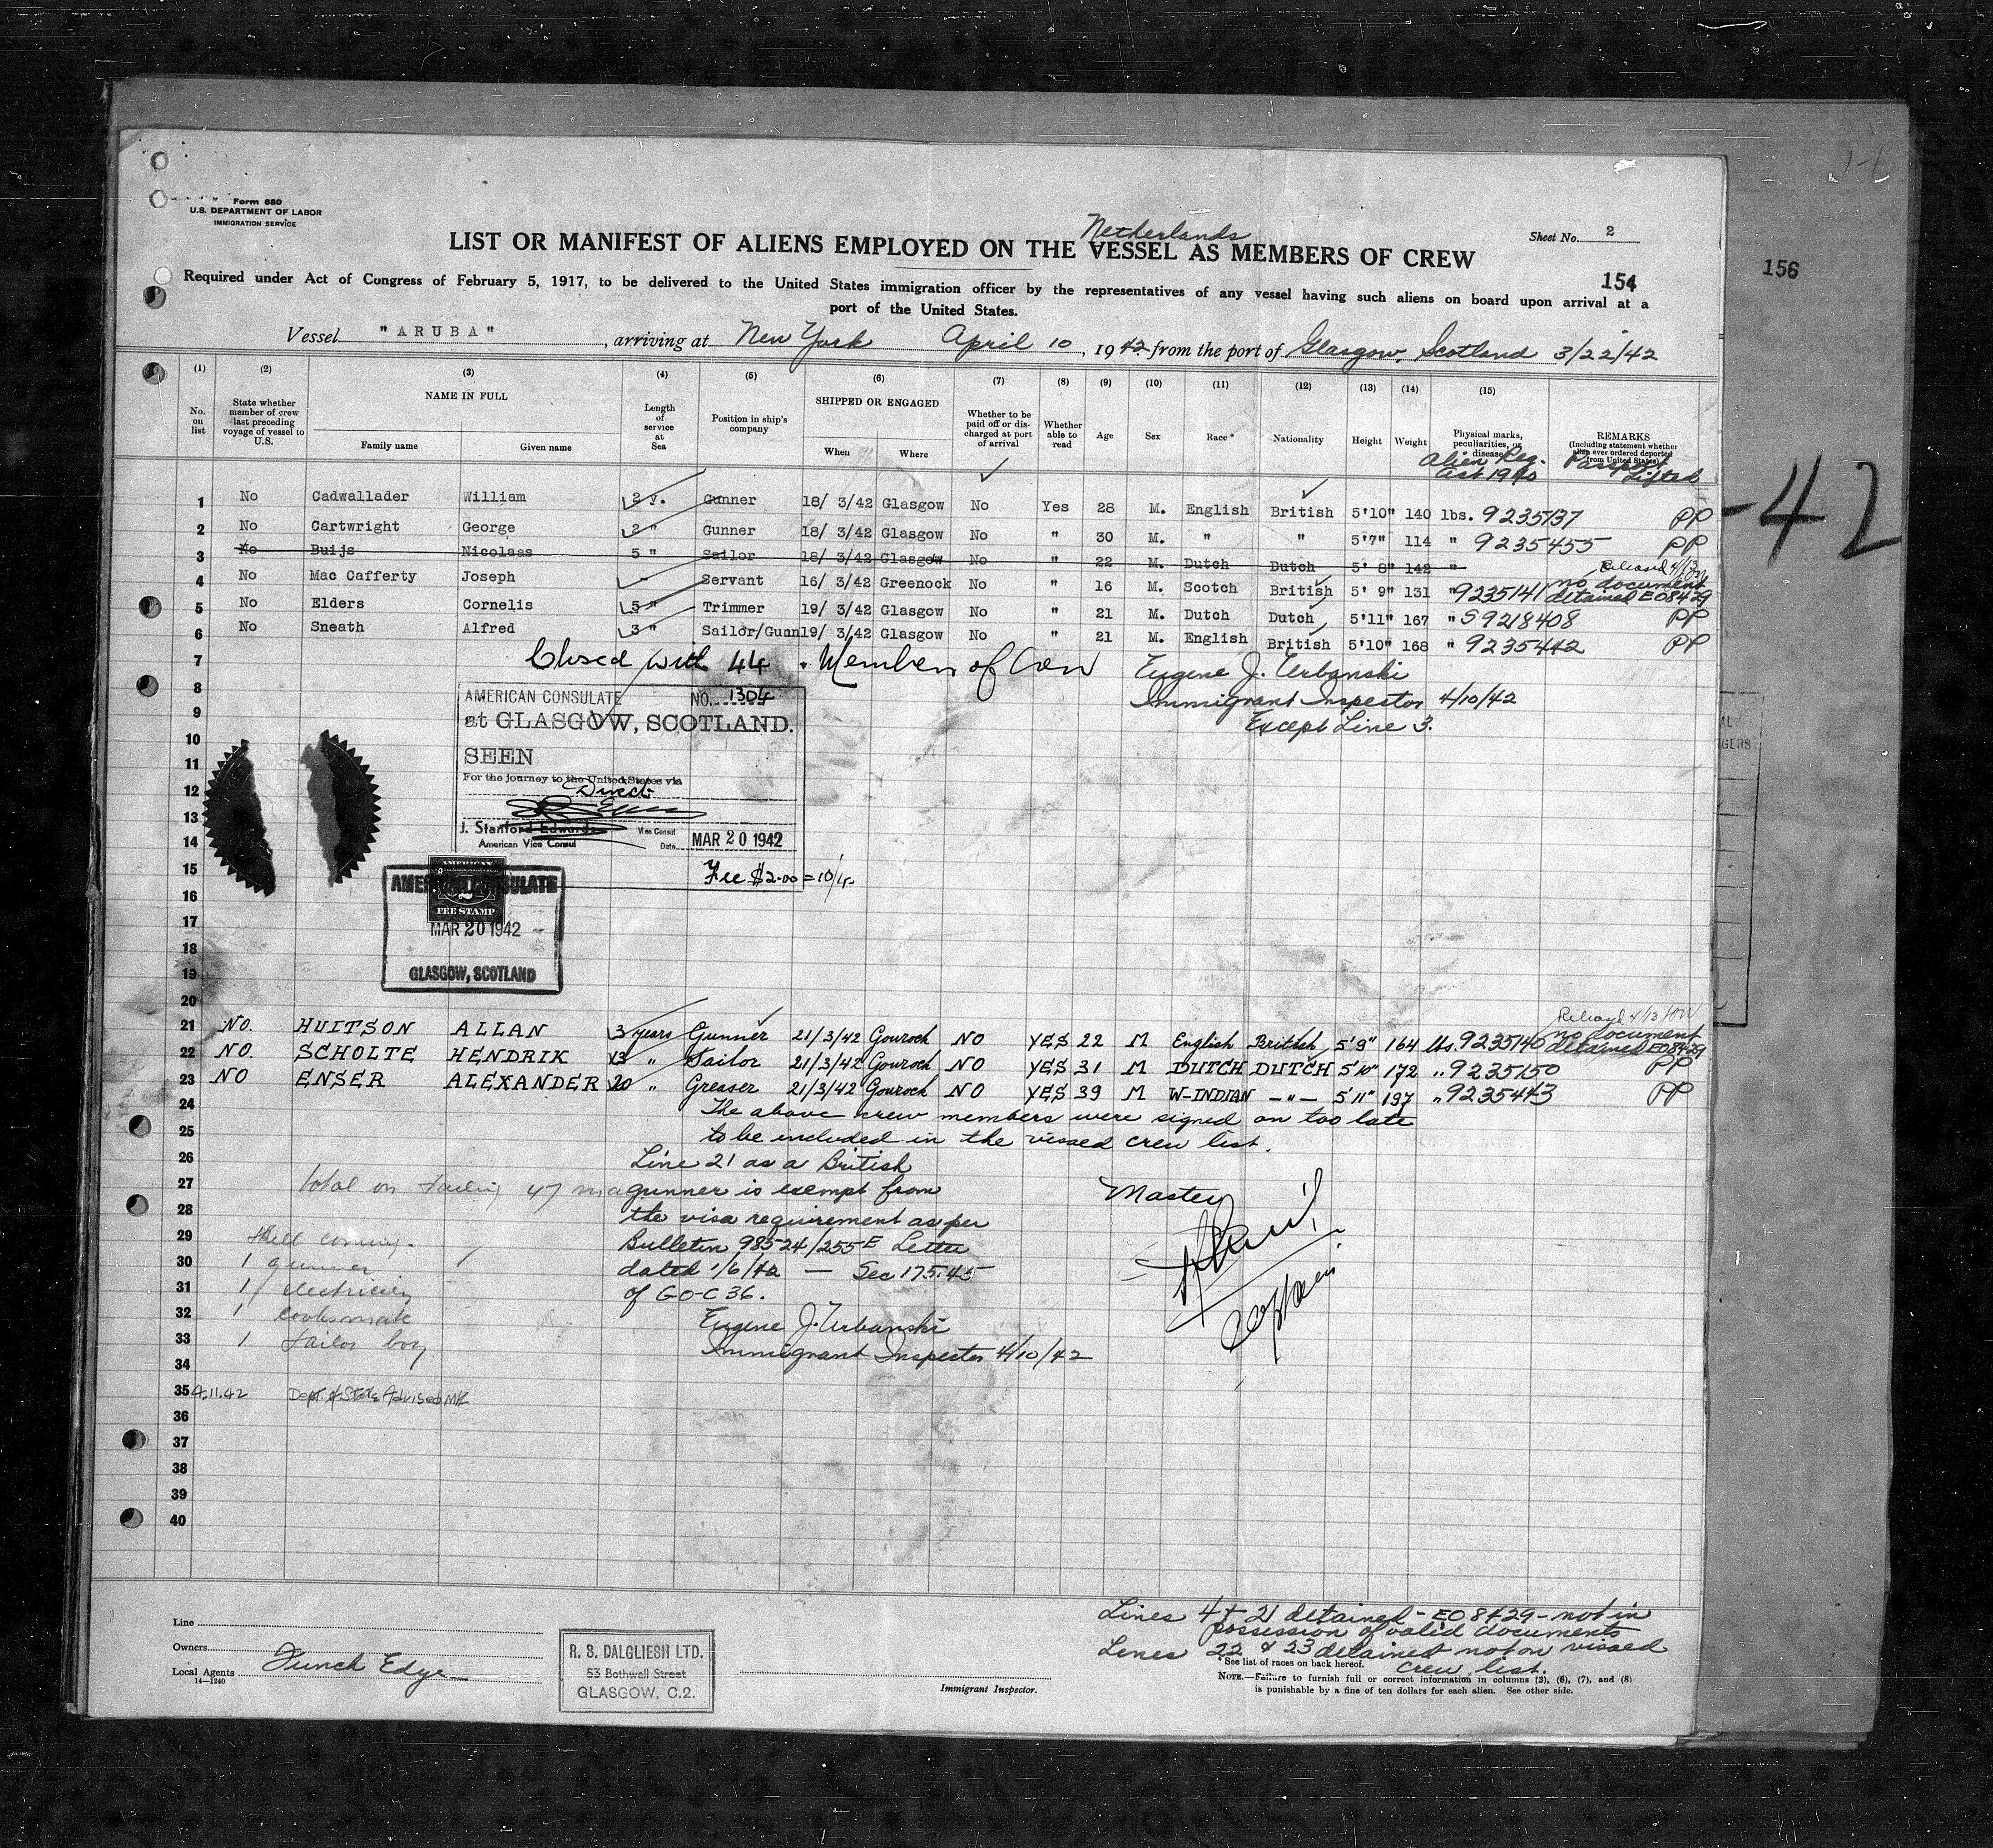 Form 680
U.S. DEPARTMENT OF LABOR
IMMIGRATION SERVICE
Netherlands
LIST OR MANIFEST OF ALIENS EMPLOYED ON THE VESSEL AS MEMBERS OF CREW
Sheet No. 2
154
156
Required under Act of Congress of February 5, 1917, to be delivered to the United States immigration officer by the representatives of any vessel having such aliens on board upon arrival at a
port of the United States.
Vessel "ARUBA", arriving at New York April 10, 1942 from the port of Glasgow, Scotland 3/22/42
(1) (2) (3) (4) (5) (6) (7) (8) (9) (10) (11) (12) (13) (14) (15)
No. on list
State whether member of crew last preceding voyage of vessel to U.S.
NAME IN FULL
Family name
Given name
Length of service at Sea
Position in ship's company
SHIPPED OR ENGAGED
When
Where
Whether to be paid off or discharged at port of arrival
Whether able to read
Age
Sex
Race*
Nationality
Height
Weight
Physical marks, peculiarities, or disease
Alien Reg. Act 1940
REMARKS
(Including statement whether alien ever ordered deported from United States)
Passport Lifted
1 No Cadwallader William 2 y. Gunner 18/ 3/42 Glasgow No Yes 28 M. English British 5'10" 140 lbs. 9235137 PP
2 No Cartwright George 2 " Gunner 18/ 3/42 Glasgow No " 30 M. " " 5'7" 114 " 9235455 PP
3 No Buijs Nicolaas 5 " Sailor 18/ 3/42 Glasgow No " 22 M. Dutch Dutch 5' 8" 142 "
4 No Mac Cafferty Joseph - Servant 16/ 3/42 Greenock No " 16 M. Scotch British 5' 9" 131 " 9235141 Released 4/13 no document detained EO8429
5 No Elders Cornelis 5 " Trimmer 19/ 3/42 Glasgow No " 21 M. Dutch Dutch 5'11" 167 " S9218408 PP
6 No Sneath Alfred 3 " Sailor/Gunn 19/ 3/42 Glasgow No " 21 M. English British 5'10" 168 " 9235442 PP
7 Closed with 44 Members of Crew Eugene J. Urbanski
8 Immigrant Inspector 4/10/42
9 Except Line 3.
10
11
12
13
14
15
16
17
18
19
20
AMERICAN CONSULATE NO. 1304
at GLASGOW, SCOTLAND.
SEEN
For the journey to the United States via
Direct
J. Stanford Edwards Vice Consul
American Vice Consul Date MAR 20 1942
Fee $2.00 = 10/4
AMERICAN CONSULATE
AMERICAN
2
FEE STAMP
MAR 20 1942
GLASGOW, SCOTLAND
21 NO. HUITSON ALLAN 3 years Gunner 21/3/42 Gourock NO YES 22 M English British 5'9" 164 lbs. 9235146 no document detained EO8429
22 NO. SCHOLTE HENDRIK 13 " Sailor 21/3/42 Gourock NO YES 31 M DUTCH DUTCH 5'10" 172 " 9235150 PP
23 NO ENSER ALEXANDER 20 " Greaser 21/3/42 Gourock NO YES 39 M W-INDIAN -"- 5'11" 197 " 9235443 PP
24 The above crew members were signed on too late
25 to be included in the vissed crew list.
26 Line 21 as a British
27 total on 47 gunner is exempt from Master
28 the visa requirement as per
29 coming. Bulletin 98524/255E Letter
30 1 gunner dated 1/6/42 — Sec 175.45
31 1 of GO-C 36. Captain
32 1 cooksmate Eugene J. Urbanski
33 1 sailor boy Immigrant Inspector 4/10/42
34
35 4.11.42 Dept. of State Advised
36
37
38
39
40
-42
Line
Owners
Local Agents Funch Edye
14—1240
R. S. DALGLIESH LTD.
53 Bothwell Street
GLASGOW, C.2.
Immigrant Inspector.
Lines 4 & 21 detained - EO 8429 - not in
possession of valid documents
Lines 22 & 23 detained not on vissed
crew list.
*See list of races on back hereof.
NOTE.—Failure to furnish full or correct information in columns (3), (6), (7), and (8)
is punishable by a fine of ten dollars for each alien. See other side.